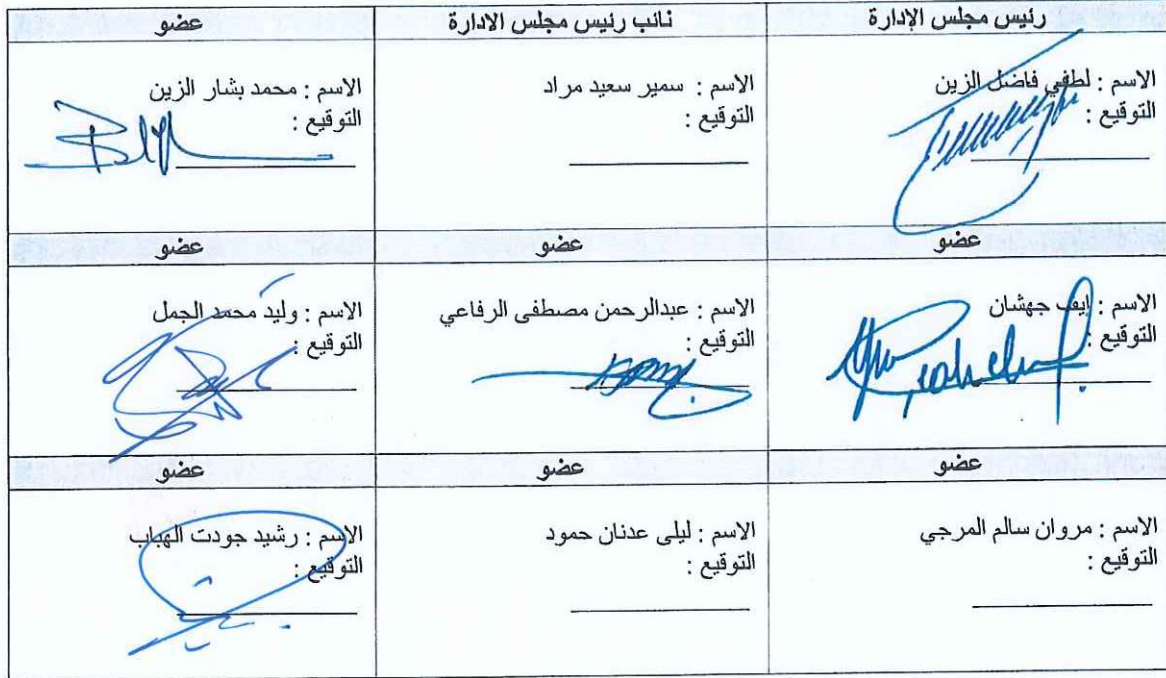 رئيس مجلس الإدارة
نائب رئيس مجلس الادارة
عضو
الاسم : لطفي فاضل الزين
التوقيع :
الاسم : سمير سعيد مراد
التوقيع :
الاسم : محمد بشار الزين
التوقيع :
عضو
عضو
عضو
الاسم : إيف جهشان
التوقيع :
الاسم : عبدالرحمن مصطفى الرفاعي
التوقيع :
الاسم : وليد محمد الجمل
التوقيع :
عضو
عضو
عضو
الاسم : مروان سالم المرجي
التوقيع :
الاسم : ليلى عدنان حمود
التوقيع :
الاسم : رشيد جودت الهباب
التوقيع :